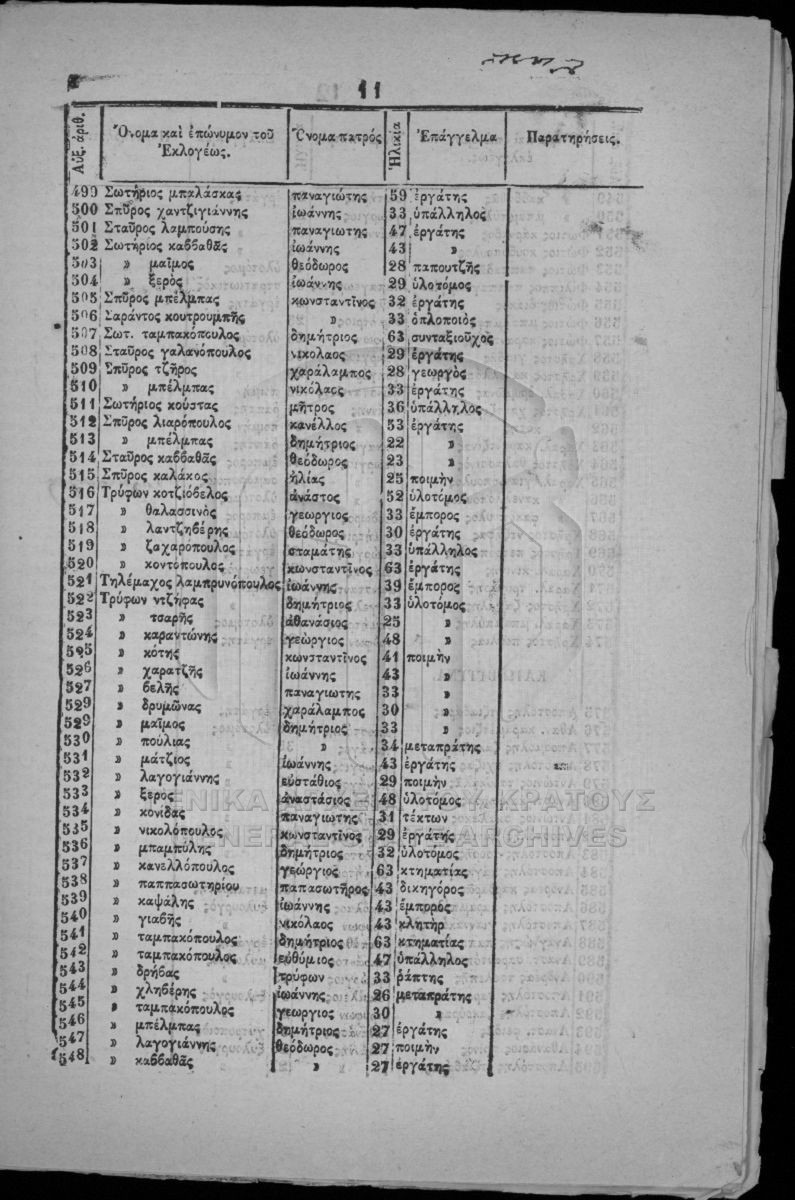 11
Αὔξ. ἀριθ. Ὄνομα καὶ ἐπώνυμον τοῦ Ἐκλογέως. Ὄνομα πατρός Ἡλικία Ἐπάγγελμα Παρατηρήσεις.
499 Σωτήριος μπαλάσκας παναγιώτης 59 ἐργάτης
500 Σπῦρος χαντζιγιάννης ἰωάννης 33 ὑπάλληλος
501 Σταῦρος λαμπούσης παναγιωτης 47 ἐργάτης
502 Σωτήριος καββαθᾶς ἰωάννης 43 »
503 » μαΐμος θεόδωρος 28 παπουτζῆς
504 » ξερὸς ἰωάννης 29 ὑλοτόμος
505 Σπῦρος μπέλμπας κωνσταντῖνος 32 ἐργάτης
506 Σαράντος κουτρουμπῆς » 33 ὁπλοποιὸς
507 Σωτ. ταμπακόπουλος δημήτριος 63 συνταξιοῦχος
508 Σταῦρος γαλανόπουλος νικολαος 29 ἐργάτης
509 Σπῦρος τζῆρος χαράλαμπος 28 γεωργὸς
510 » μπέλμπας νικόλαος 33 ἐργάτης
511 Σωτήριος κούστας μῆτρος 36 ὑπάλληλος
512 Σπῦρος λιαρόπουλος κανέλλος 53 ἐργάτης
513 » μπέλμπας δημήτριος 22 »
514 Σταῦρος καββαθᾶς θεόδωρος 23 »
515 Σπῦρος καλάκος ἠλίας 25 ποιμὴν
516 Τρύφων κοτζιόβελος ἀνάστος 52 ὑλοτόμος
517 » θαλασσινὸς γεωργιος 33 ἔμπορος
518 » λαντζηβέρης θεόδωρος 30 ἐργάτης
519 » ζαχαρόπουλος σταμάτης 33 ὑπάλληλος
520 » κοντόπουλος κωνσταντῖνος 63 ἐργάτης
521 Τηλέμαχος λαμπρυνόπουλος ἰωάννης 39 ἔμπορος
522 Τρύφων ντζήφας δημήτριος 33 ὑλοτόμος
523 » τσαρῆς ἀθανάσιος 25 »
524 » καραντώνης γεώργιος 48 »
525 » κότης κωνσταντῖνος 41 ποιμὴν
526 » χαρατζῆς ἰωάννης 43 »
527 » βελῆς παναγιωτης 33 »
529 » δρυμῶνας χαράλαμπος 30 »
529 » μαΐμος δημήτριος 33 »
530 » πούλιας » 34 μεταπράτης
531 » μάτζιος ἰωάννης 43 ἐργάτης
532 » λαγογιάννης εὐστάθιος 29 ποιμὴν
533 » ξερὸς ἀναστάσιος 48 ὑλοτόμος
534 » κονίδας παναγιωτης 31 τέκτων
535 » νικολόπουλος κωνσταντῖνος 29 ἐργάτης
536 » μπαμπύλης δημήτριος 32 ὑλοτόμος
537 » κανελλόπουλος γεώργιος 63 κτηματίας
538 » παππασωτηρίου παπασωτῆρος 43 δικηγόρος
539 » καψάλης ἰωάννης 43 ἔμπορὸς
540 » γιαβῆς νικόλαος 43 κλητὴρ
541 » ταμπακόπουλος δημήτριος 63 κτηματίας
542 » ταμπακόπουλος εὐθύμιος 47 ὑπάλληλος
543 » δρήβας τρύφων 33 ῥάπτης
544 » χληβέρης ἰωάννης 26 μεταπράτης
545 » ταμπακόπουλος γεωργιος 30 »
546 » μπέλμπας δημήτριος 27 ἐργάτης
547 » λαγογιάννης θεόδωρος 27 ποιμὴν
548 » καββαθᾶς » 27 ἐργάτης